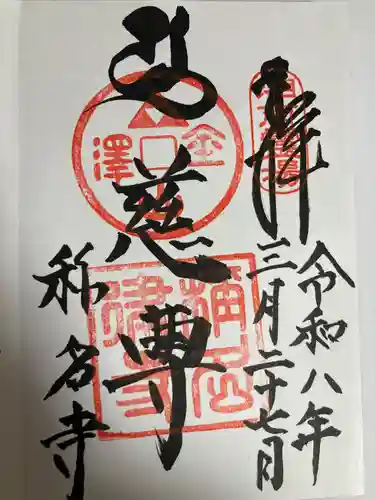 奉拝
令和八年
三月二十七日
慈尊
称名寺
金
澤